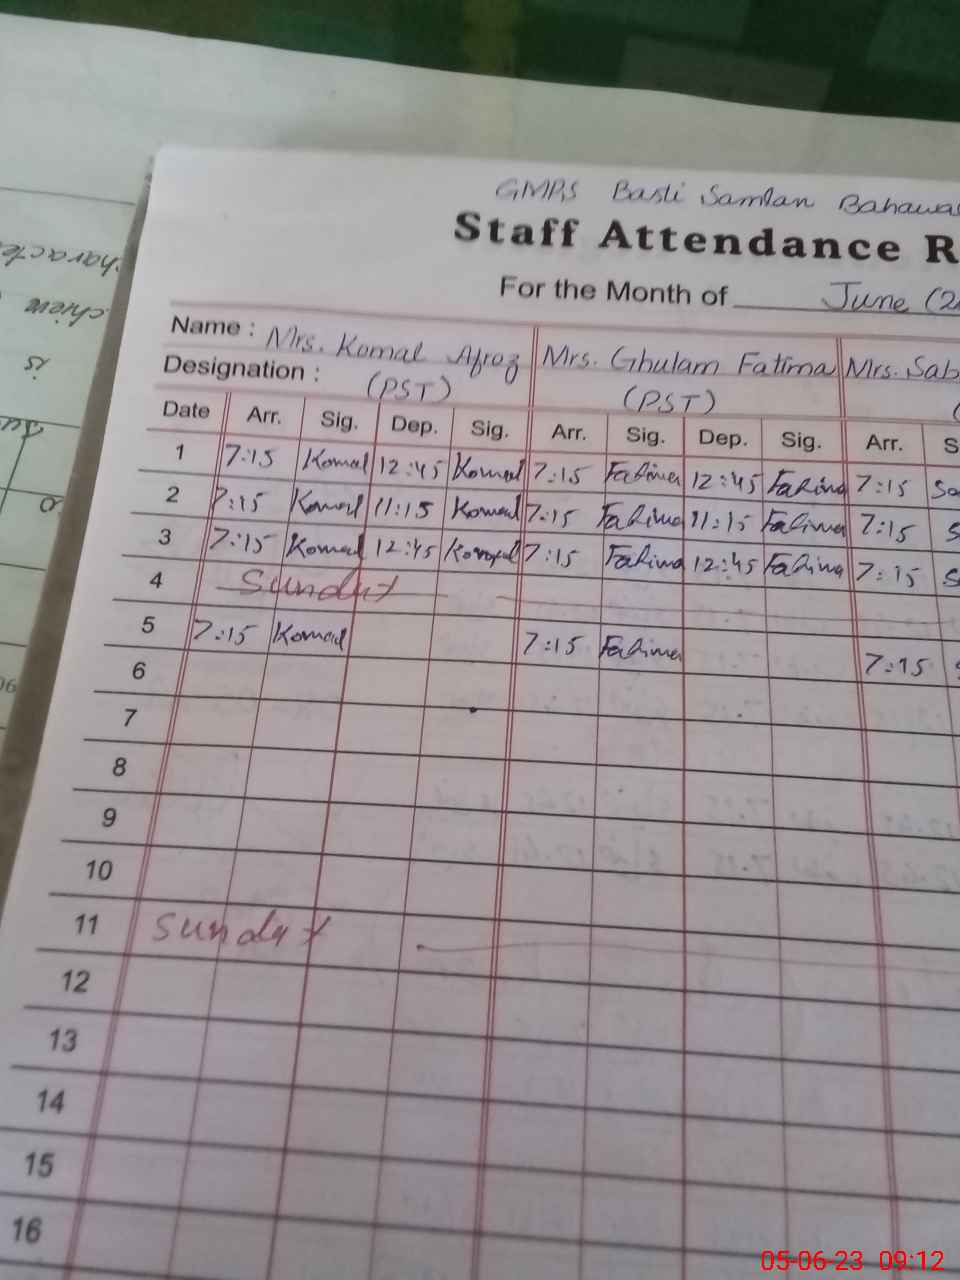 GMPS Basti Samlan Bahawa
Staff Attendance R
For the Month of June (2
Name : Mrs. Komal Afroz Mrs. Ghulam Fatima Mrs. Sab
Designation : (PST) (PST) (
Date Arr. Sig. Dep. Sig. Arr. Sig. Dep. Sig. Arr. S
1 7:15 Komal 12:45 Komal 7:15 Fatima 12:45 Fatima 7:15 Sa
2 7:15 Komal 11:15 Komal 7:15 Fatima 11:15 Fatima 7:15 S
3 7:15 Komal 12:45 Komal 7:15 Fatima 12:45 Fatima 7:15 S
4 Sunday
5 7:15 Komal 7:15 Fatima 7:15 S
6
7
8
9
10
11 Sunday
12
13
14
15
16
characte
chieve
is
05-06-23 09:12